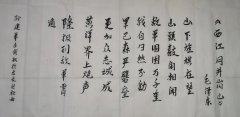 《西江月 井崗山》
毛泽东
山下旌旗在望
山头鼓角相闻
敌军围困万千重
我自岿然不动
早已森严壁垒
更加众志成城
黄洋界上炮声
隆报到敌军宵
遁